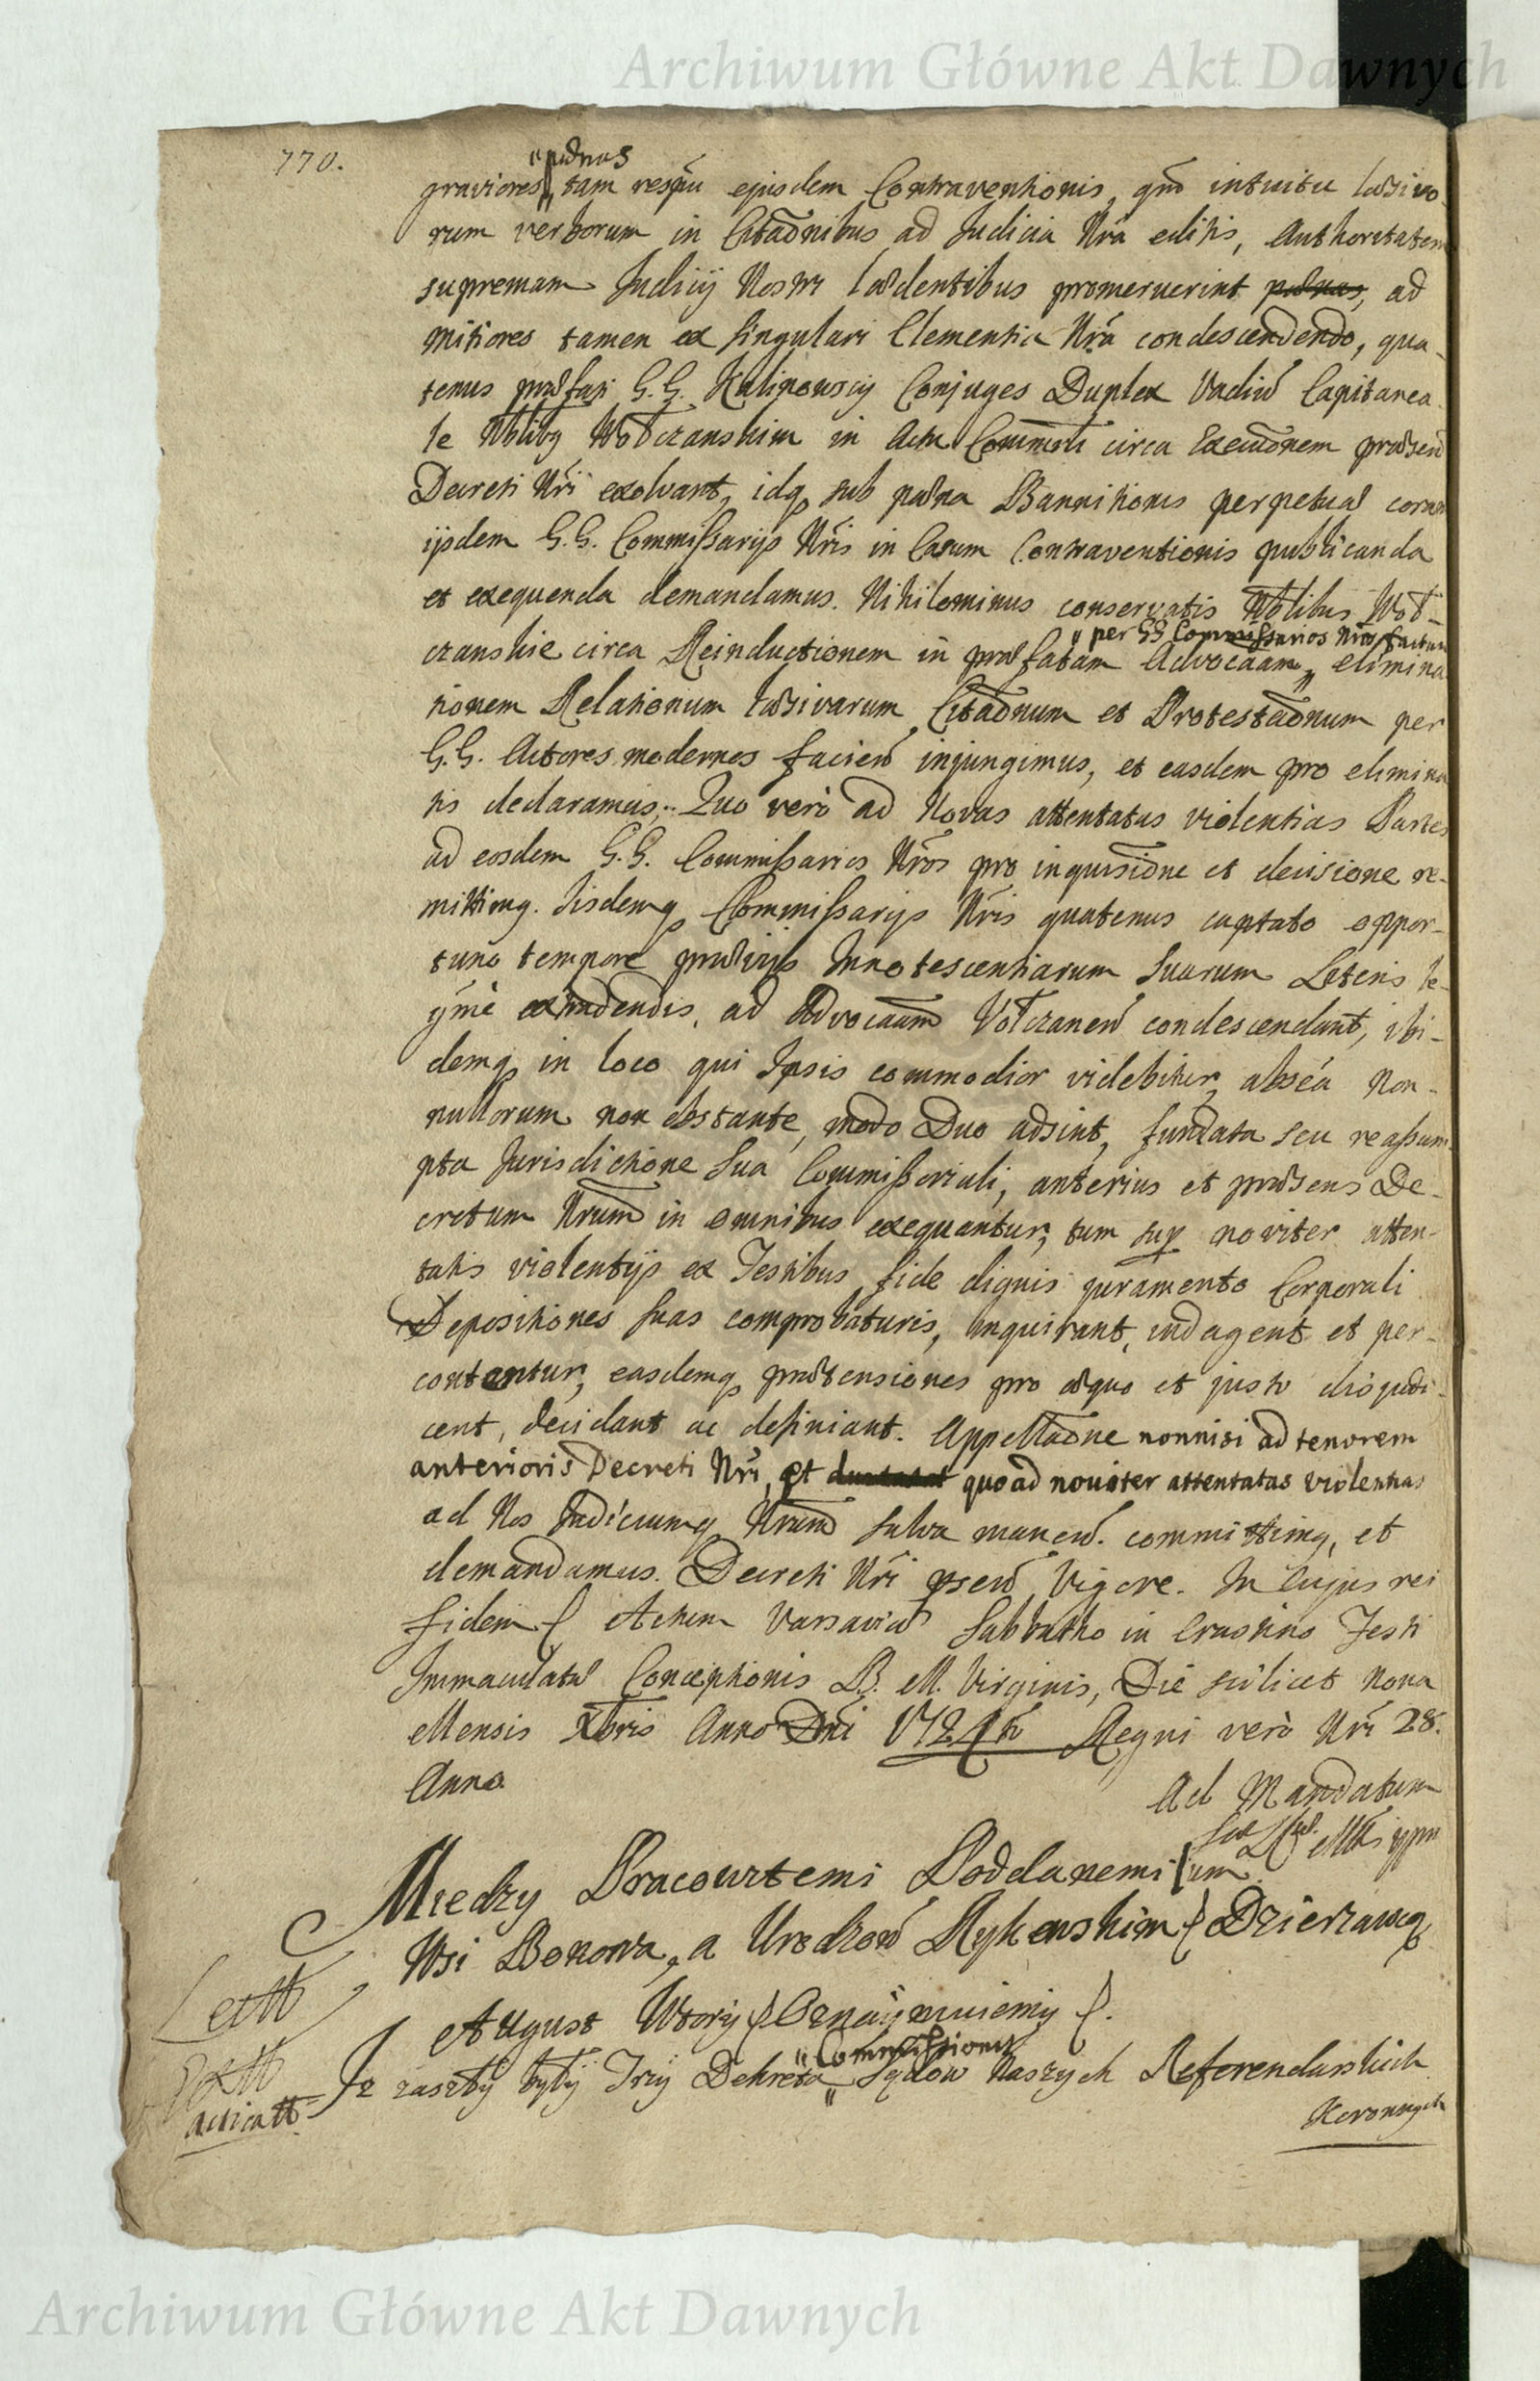 Archiwum Główne Akt Dawnych
770.
"pœnas
graviores „ tam respũ ejusdem Contraventionis, qm̃o intuitu læsivo-
rum verborum in Citãonibus ad Judicia Nrã editis, Authoritatem
supremam Judicij Nostri lædentibus promeruerint pœnas, ad
mitiores tamen ex singulari Clementia Nrã condescendendo, qua-
tenus præfati G.G. Kalinowscy Conjuges Duplex Vadiũ Capitanea-
le Nblibq Wołczanskim in Actu Commiss circa Execuõnem præsen
Decreti Nri exolvant, idq sub pœna Bannitionis perpetuæ coram
ijsdem G.G. Commissarijs Nris in Casum Contraventionis publicanda
et exequenda demandamus. Nihilominus conservatis Nblibus Woł-
" per GG Commissarios Nros factam
czanskie circa Reinductionem in præfatam Advocaãm „ elimina
tionem Relationum læsivarum Citãonum et Protestãonum per
G.G. Actores modernos facien̄ injungimus, et easdem pro elimina
tis declaramus; Quo verò ad Novas attentatas violentias Partes
ad eosdem G.G. Commissarios Nros pro inquisiõne et decisione re-
mittimq. Iisdemq Commissarijs Nris quatenus captato oppor-
tuno tempore prævijs Innotescentiarum Suarum Literis le-
gŷmè extradendis, ad Advocaãm Vołczanen̄ condescendant, ibi-
demq in loco qui Ipsis commodior videbitur, absẽa non-
nullorum non obstante, modo Duo adsint, fundata seu reassum
pta Jurisdictione Sua Commissoriali, anterius et præsens De-
cretum Nrum in omnibus exequantur, tum sup noviter atten-
tatis violentijs ex Testibus fide dignis juramento Corporali
Depositiones Suas comprobaturis, inquirant, indagent et per-
contentur, easdemq prætensiones pro æquo et justo dijudi-
cent, decidant ac definiant. Appellãone nonnisi ad tenorem
anterioris Decreti Nri, et quoad noviter attentatas violentias
ad Nos Judiciumq Nrum salva manen̄. committimq, et
demandamus. Decreti Nri psen̄ Vigore. In Cujus rei
fidem Actum Varsaviæ Sabbatho in Crastino Festi
Immaculatæ Conceptionis B. M. Virginis, Die scilicet Nona
Mensis Xbris Anno Dni 1724to Regni verò Nri 28.
Anno.
Ad Mandatum
Miedzy Pracowitemi Poddanemi
Wsi Bonowa, a Urodzon̄ Rykenskim Dzierzawcą
August Wtory Oznaymuiemy
"Commissionis
Iz zaszły były Trzy Dekreta „ Sądow Naszych Referendarskich
Koronnych
Archiwum Główne Akt Dawnych